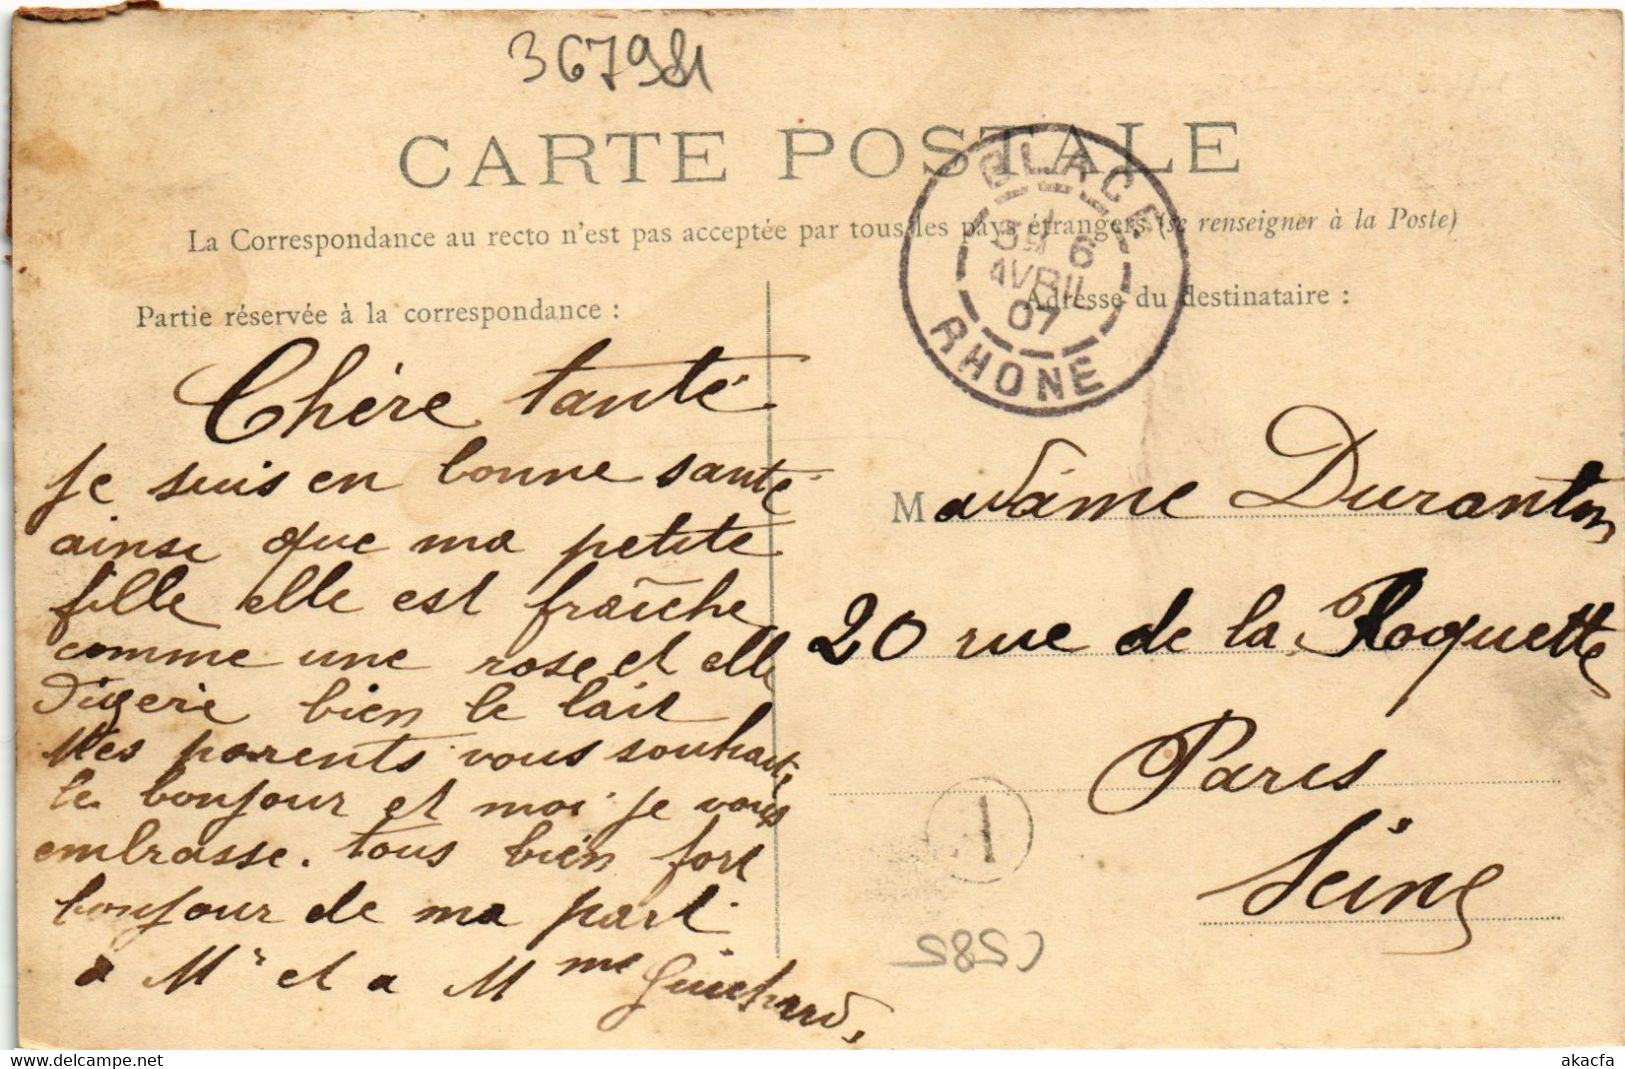 367981
CARTE POSTALE
La Correspondance au recto n'est pas acceptée par tous les pays étrangers (se renseigner à la Poste)
Partie réservée à la correspondance :
Chère tante
je suis en bonne santé
ainsi que ma petite
fille elle est fraîche
comme une rose et elle
digère bien le lait
Mes parents vous souhaite
le bonjour et moi je vous
embrasse. tous bien fort
bonjour de ma part
a Mr et a Mme Guichard,
GLACE
6
AVRIL
07
RHONE
Adresse du destinataire :
Madame Duranton
20 rue de la Roquette
Paris
Seine
1
C582
akacfa